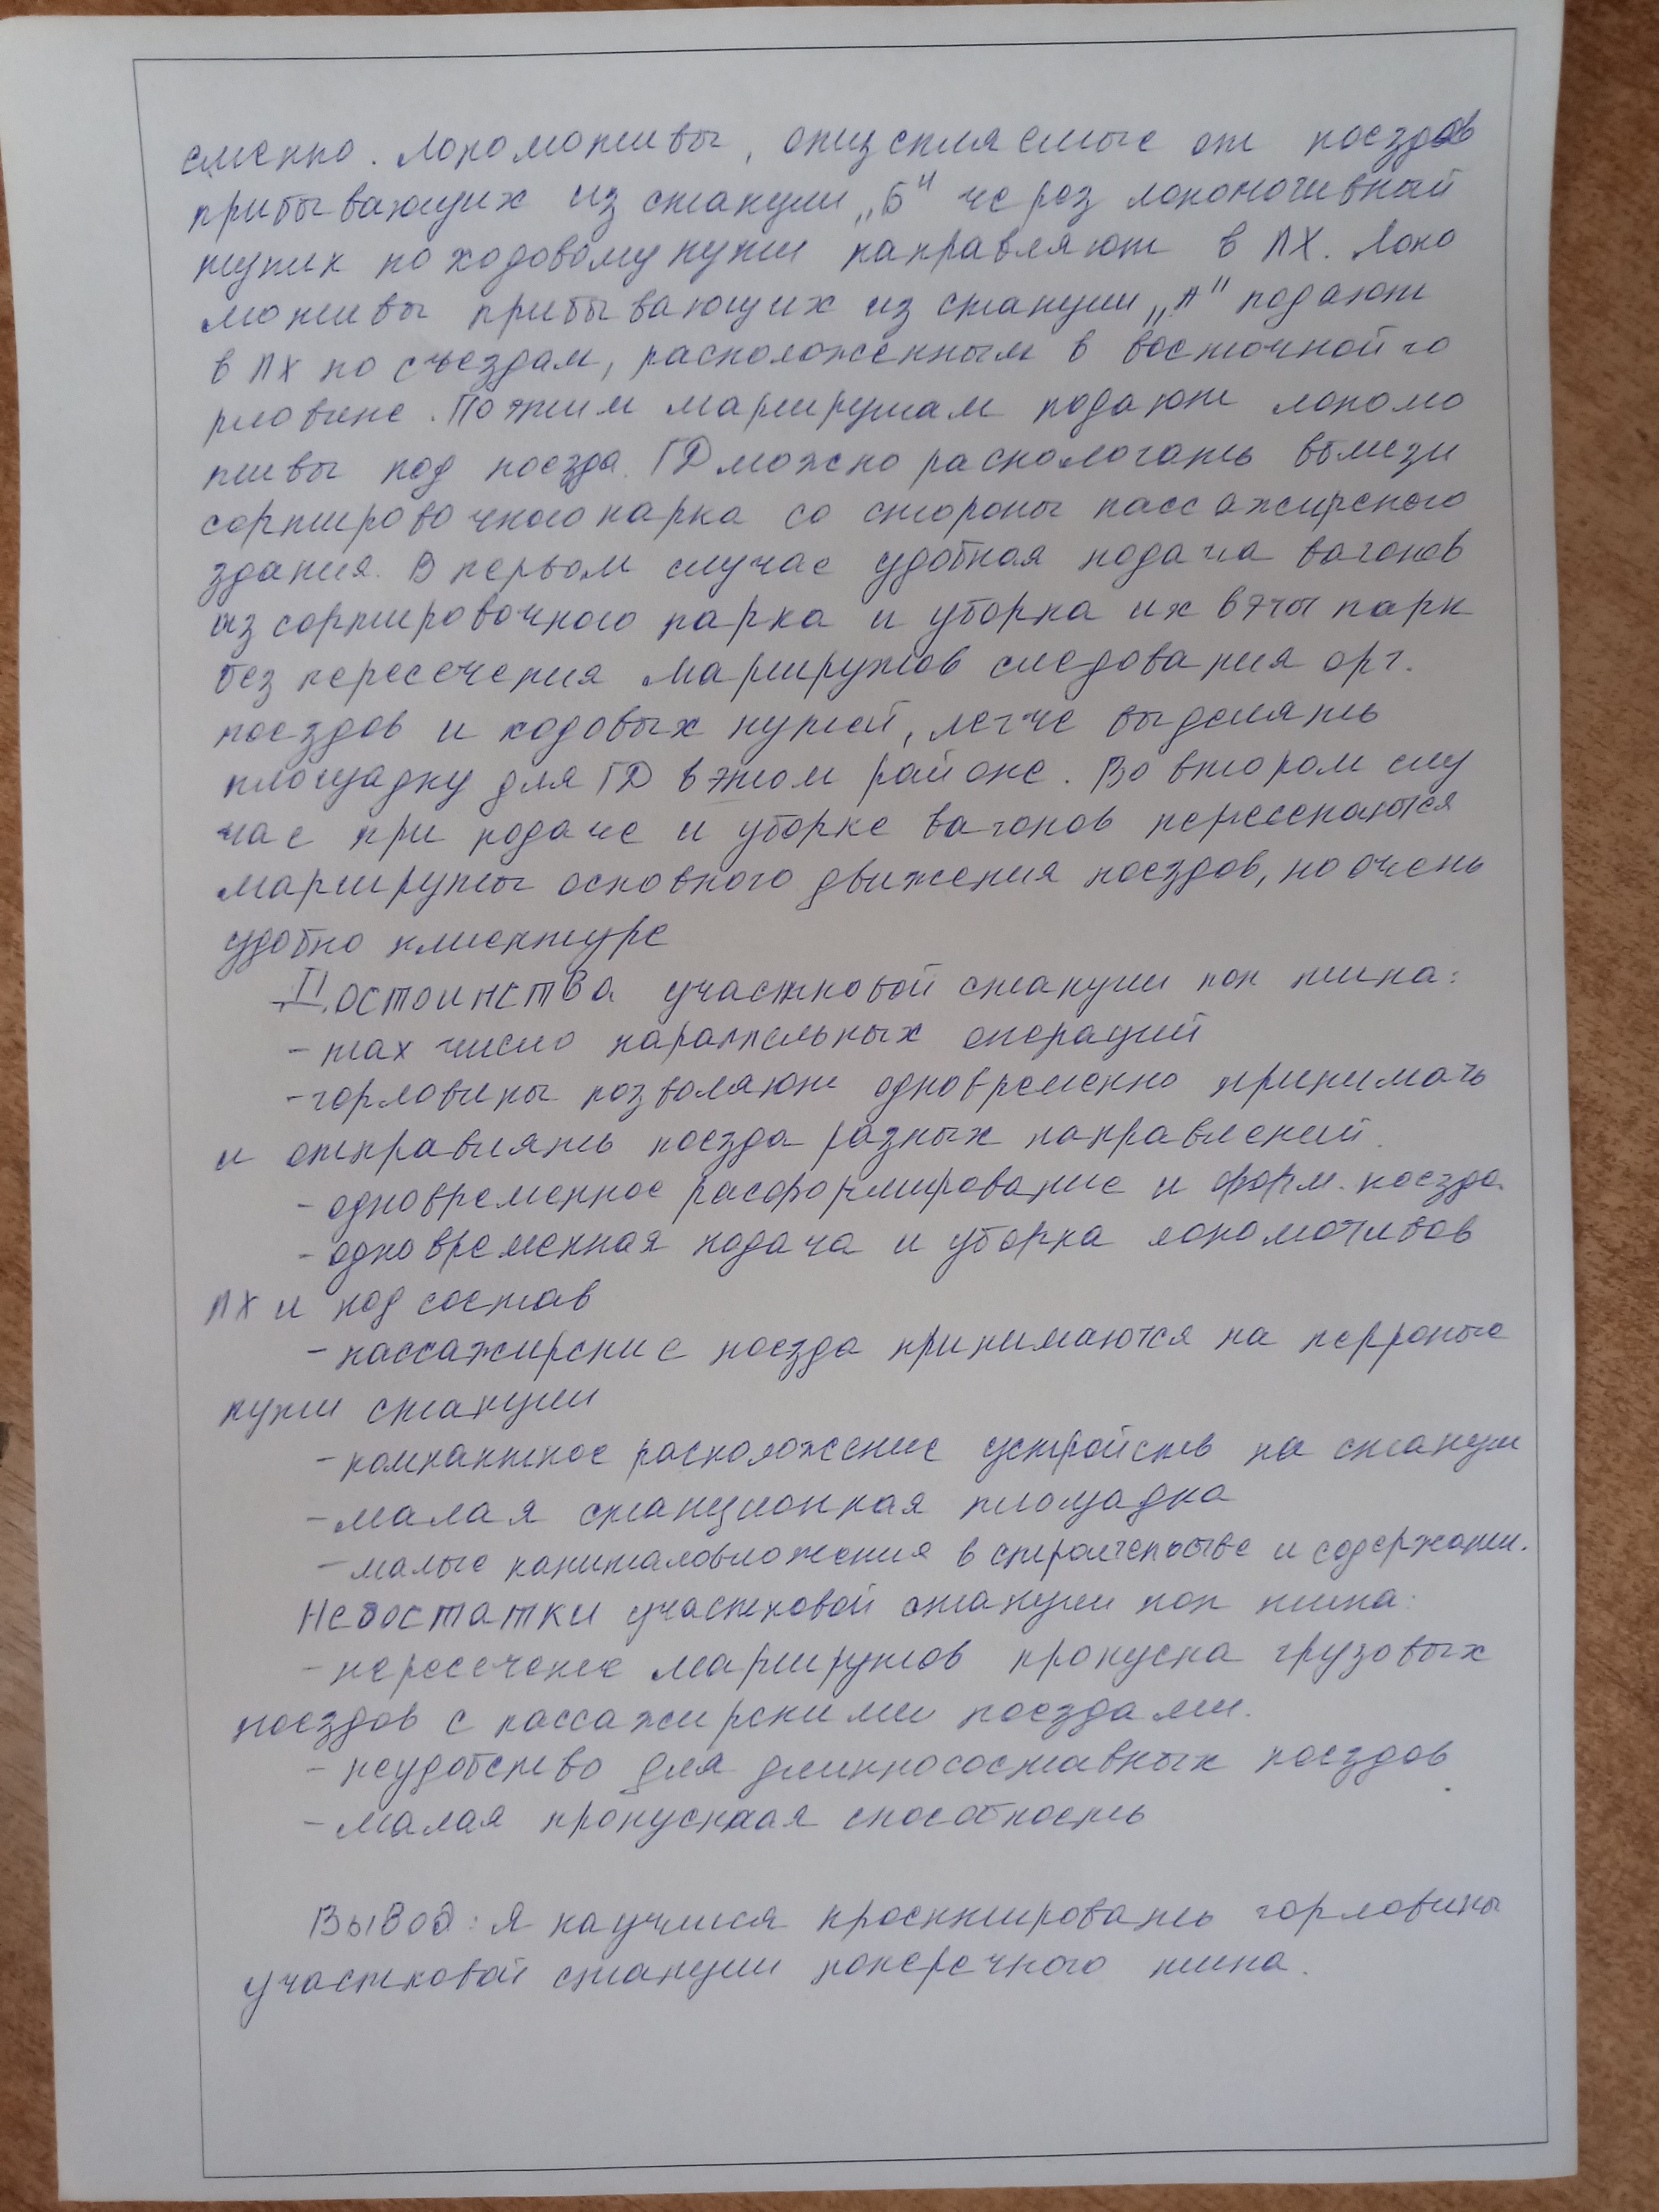 еменно. Локомотивы, отцепляемые от поездов
прибывающих из станции „Б" через локомотивный
тупик по ходовому пути направляют в ЛХ. Локо
мотивы прибывающих из станции „А" подают
в ЛХ по съездам, расположенным в восточной го
рловине. По этим маршрутам подают локомо
тивы под поезда. ГД можно распологать вблизи
сортировочного парка со стороны пассажирского
здания. В первом случае удобная подача вагонов
из сортировочного парка и уборка их в этот парк
без пересечения маршрутов следования орг.
поездов и ходовых путей, легче выделять
площадку для ГД в этом районе. Во втором слу
чае при подаче и уборке вагонов пересекаются
маршруты основного движения поездов, но очень
удобно клиентуре
Достоинства участковой станции поп типа:
- max число параллельных операций
- горловины позволяют одновременно принимать
и отправлять поезда разных направлений.
- одновременное расформирование и форм. поезда
- одновременная подача и уборка локомотивов
ЛХ и под состав
- пассажирские поезда принимаются на перроные
пути станции
- компактное расположение устройств на станции
- малая станционная площадка
- малые капиталовложения в строительстве и содержании.
Недостатки участковой станции поп типа:
- пересечение маршрутов пропуска грузовых
поездов с пассажирскими поездами.
- неудобство для длинносоставных поездов
- малая пропускная способность
Вывод: я научился проектировать горловины
участковой станции поперечного типа.